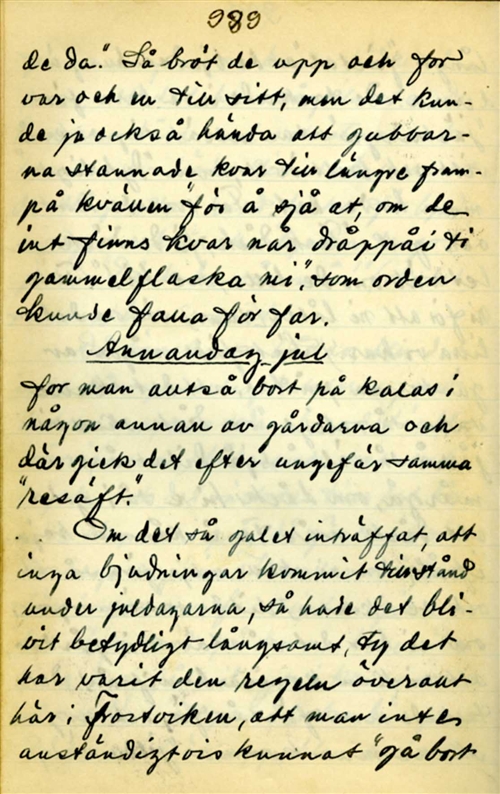 989
de da." Så bröt de upp och for
var och en till sitt, men det kun-
de ju också hända att gubbar-
na stannade kvar till längre fram-
på kvällen "för å sjå at, om de
int finns kvar når dråppåi ti
gammelflaska mi", som orden
kunde falla för far.
Annandag jul
for man alltså bort på kalas i
någon annan av gårdarna och
där gick det efter ungefär samma
"resäft."
. . Om det så galet inträffat, att
inga bjudningar kommit till stånd
under juldagarna, så hade det bli-
vit betydligt långsamt, ty det
har varit den regeln överallt
här i Frostviken, att man inte
anständigtvis kunnat "gå bort